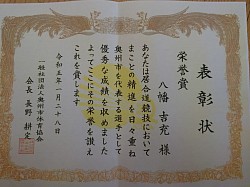 表彰状
栄誉賞
八幡吉充 様
あなたは居合道競技において
まことの精進を日々重ね
奥州市を代表する選手として
優秀な成績を収めました
よってここにその栄誉を讃え
これを賞します
令和五年一月二十八日
一般社団法人奥州市体育協会
会長 長野耕定